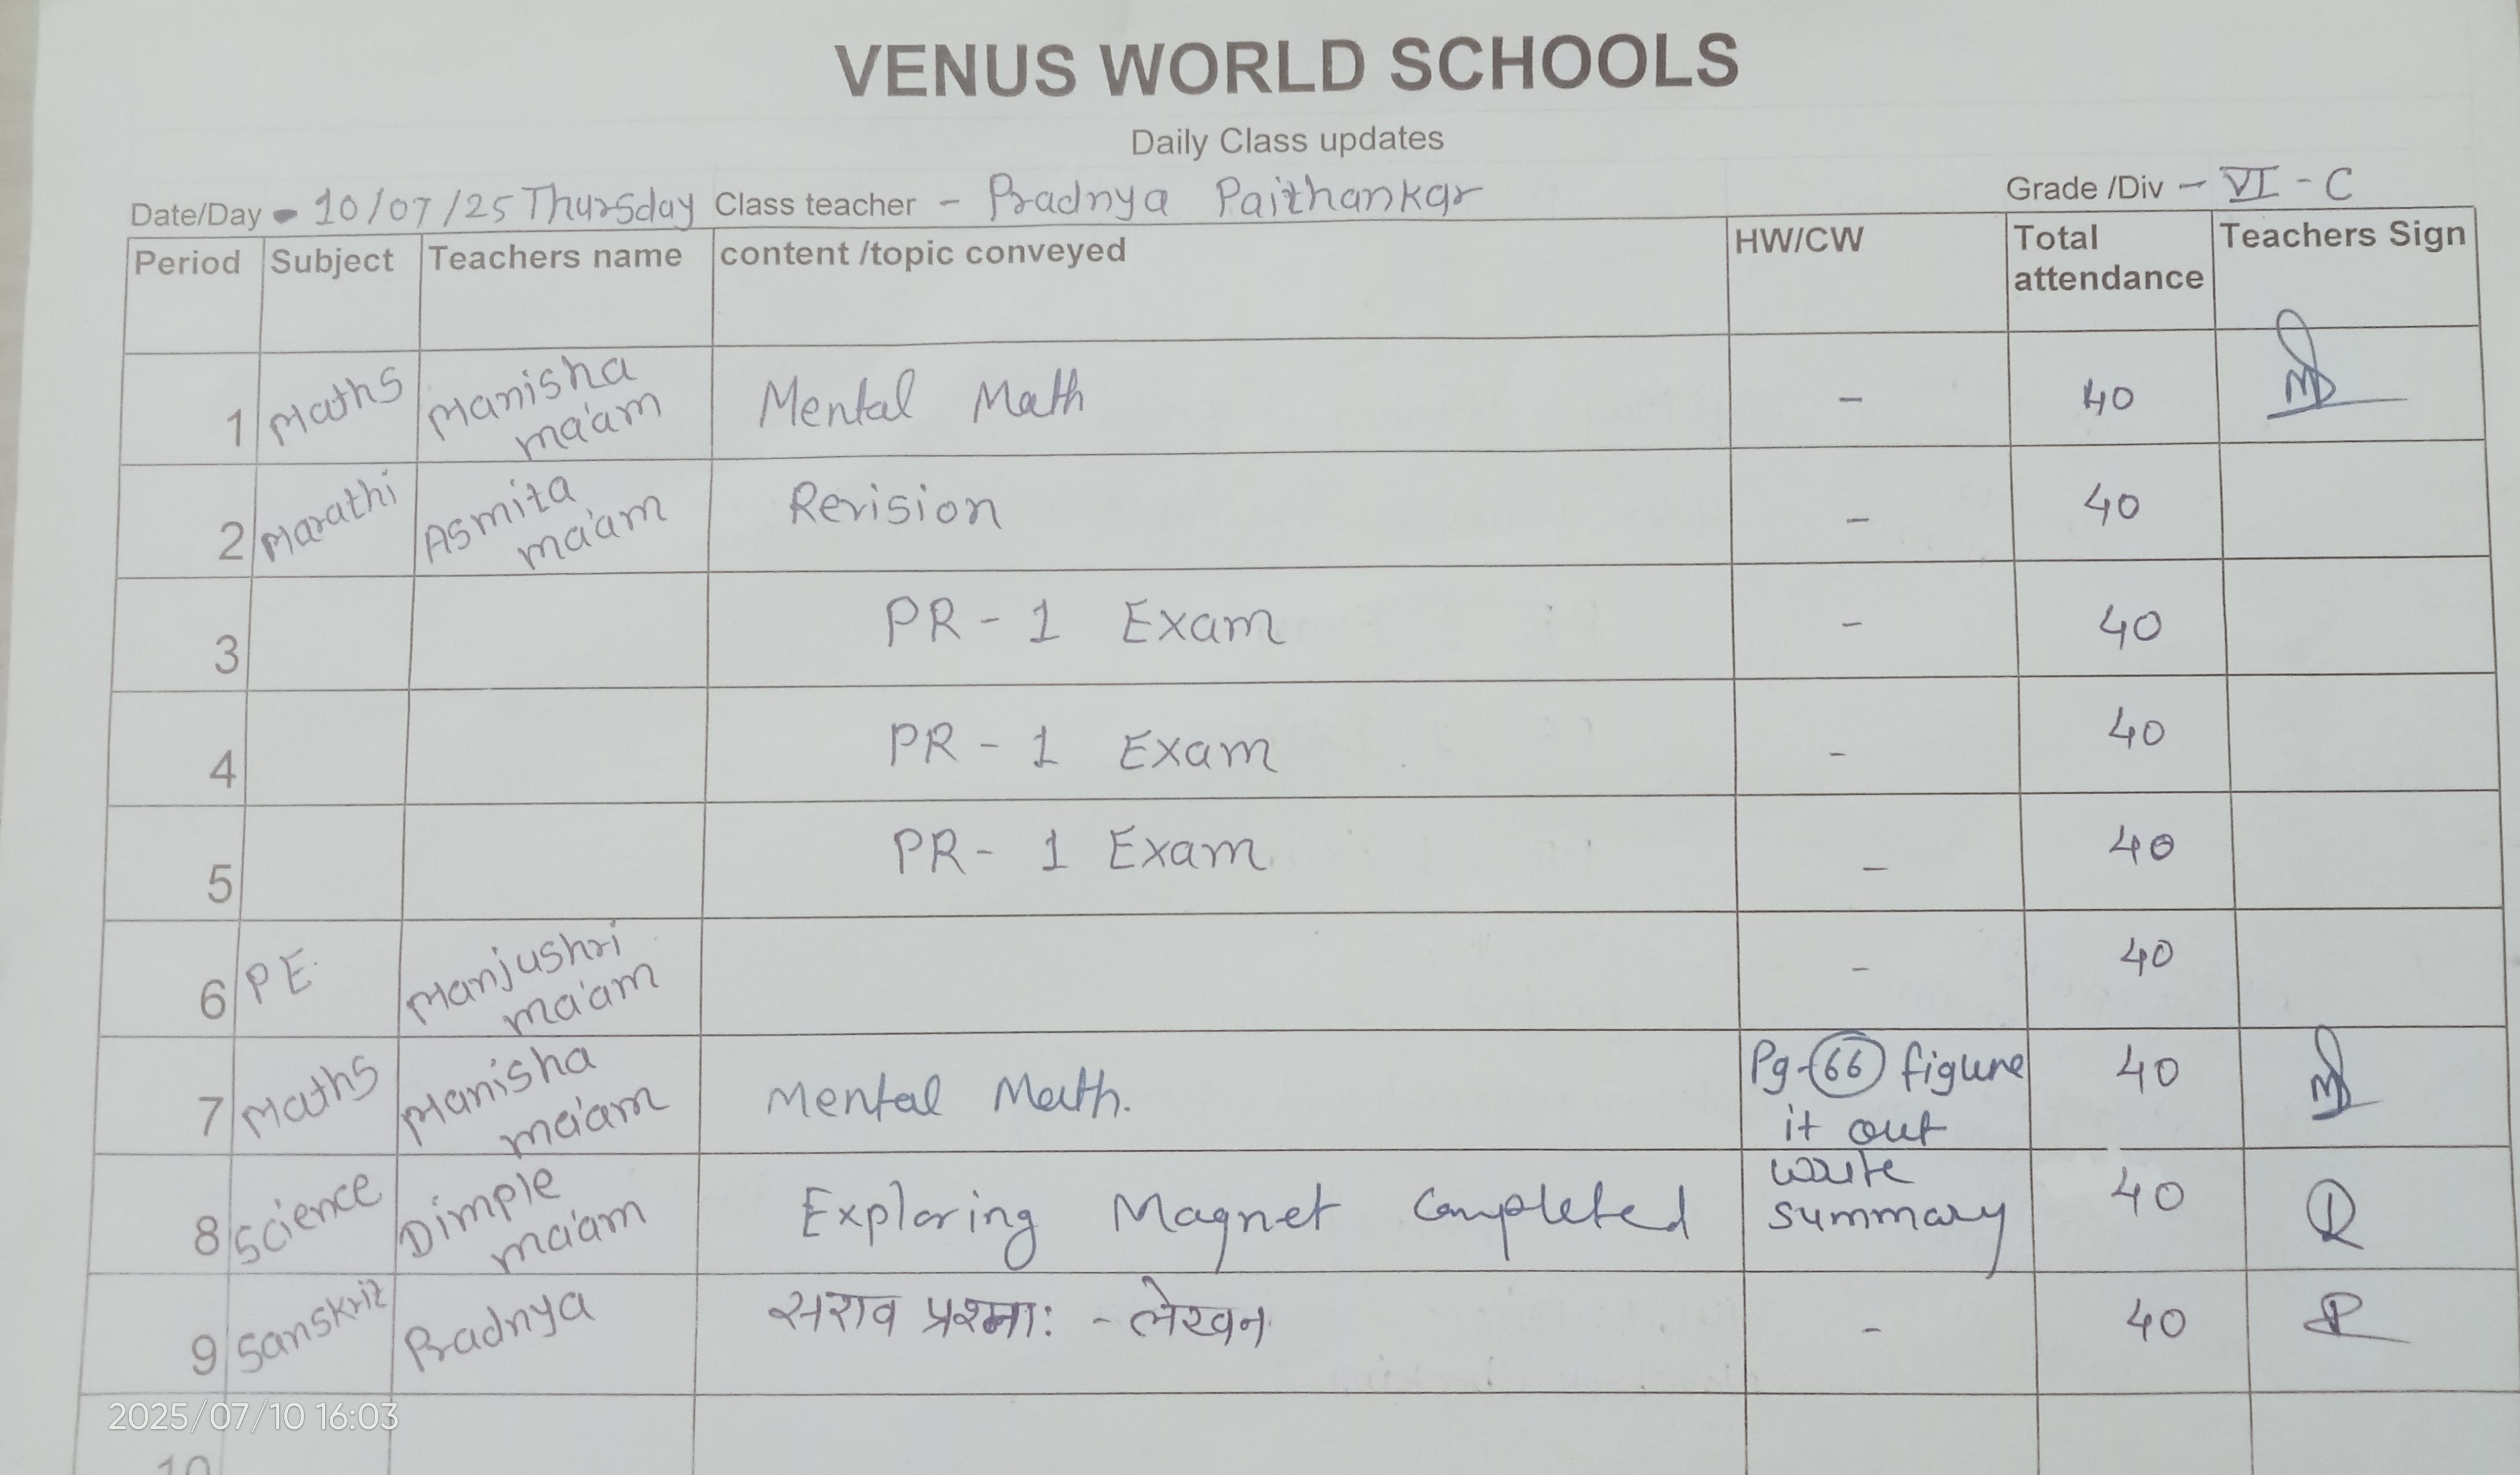 VENUS WORLD SCHOOLS
Daily Class updates
Date/Day - 10/07/25 Thursday Class teacher - Pradnya Paithankar Grade /Div - VI - C
Period Subject Teachers name content /topic conveyed HW/CW Total attendance Teachers Sign
1 Maths Manisha ma'am Mental Math - 40
2 Marathi Asmita ma'am Revision - 40
3 PR - 1 Exam - 40
4 PR - 1 Exam - 40
5 PR - 1 Exam - 40
6 PE Manjushri ma'am - 40
7 Maths Manisha ma'am Mental Math. Pg-66 figure it out 40
8 Science Dimple ma'am Exploring Magnet Completed write summary 40
9 Sanskrit Pradnya सराव प्रश्नाः - लेखन - 40
2025/07/10 16:03
10